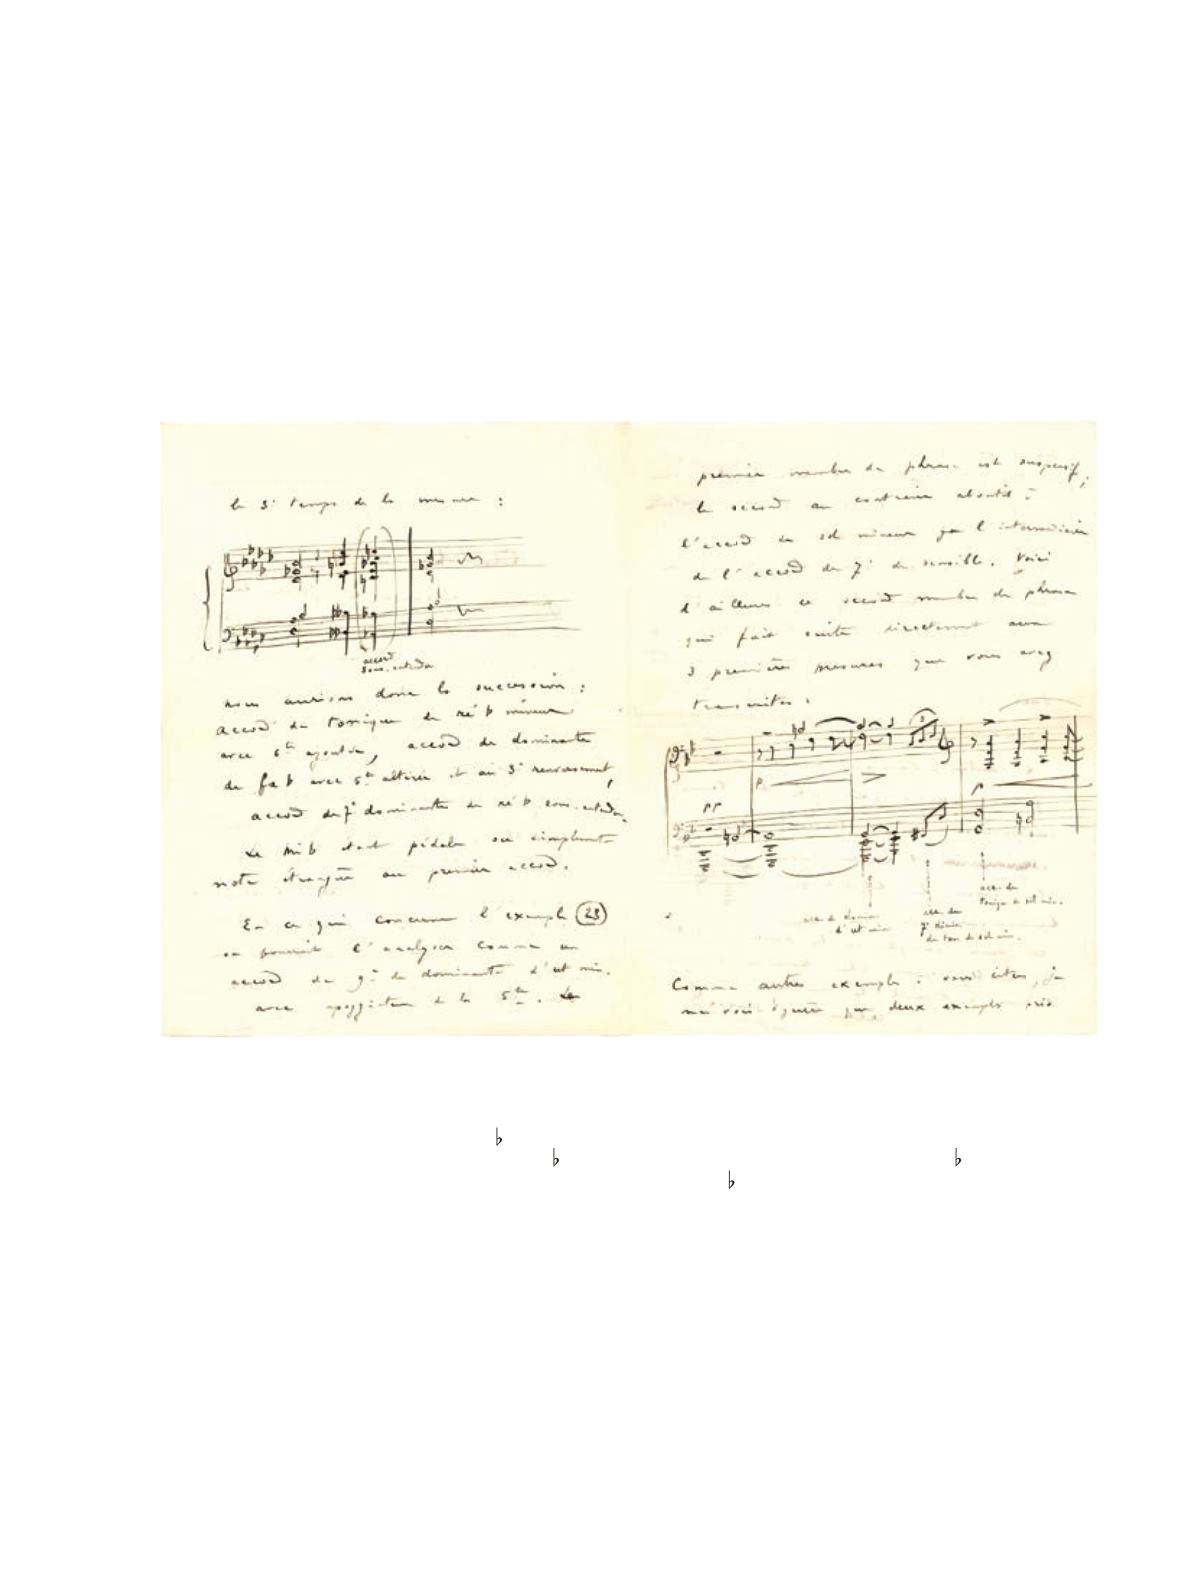 le 3e temps de la mesure :
accord
sous-entendu
nous aurions donc la succession :
accord de tonique de ré b mineur
avec 6te ajoutée, accord de dominante
de fa b avec 5te altérée et au 3e renversement,
accord de 7e dominante de ré b sous-entendu.
Le mi b étant pédale ou simplement
note étrangère au premier accord.
En ce qui concerne l'exemple (23)
on pourrait l'analyser comme un
accord de 9e de dominante d'ut min.
avec appoggiature de la 5te. Le
premier membre de phrase est suspensif,
le second au contraire aboutit à
l'accord de sol mineur par l'intermédiaire
de l'accord de 7e de sensible. Voici
d'ailleurs ce second membre de phrase
qui fait suite directement aux
3 premières mesures que vous avez
transcrites :
p
p
pp
acc. de
tonique de sol min.
acc. de domin.
d'ut min
acc. de
7e dimin.
du ton de sol min.
Comme autres exemples à vous citer, je
ne vois guère que deux exemples pris
♭
♭ ♭
♭